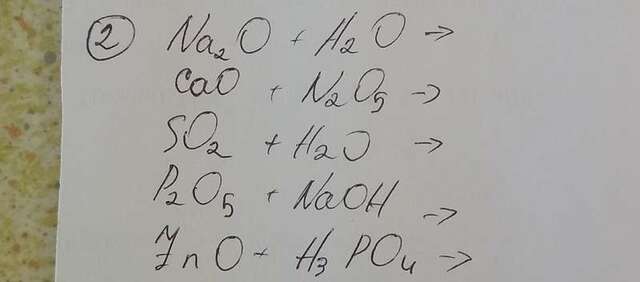 ② Na₂O + H₂O →
CaO + N₂O₅ →
SO₂ + H₂O →
P₂O₅ + NaOH →
ZnO + H₃PO₄ →